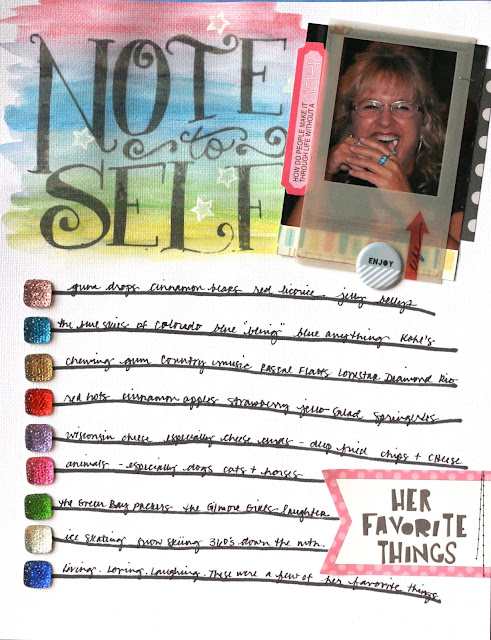 NOTE
to
SELF
HOW DO PEOPLE MAKE IT
THROUGH LIFE WITHOUT A
SISTER
ENJOY
life
gum drops cinnamon bears red licorice - jelly bellys
the blue skies of Colorado blue "being" blue anything Kohl's
chewing gum Country music Rascal Flatts Lonestar Diamond Rio
red hots cinnamon apples strawberry jello salad Springerles
wisconsin cheese especially cheese curds - deep fried chips + cheese
animals - especially dogs cats + horses
the Green Bay Packers the Gilmore Girls - laughter
ice skating snow skiing 360's down the mtn.
Loving. Loving. Laughing. These were a few of her favorite things
HER
FAVORITE
THINGS